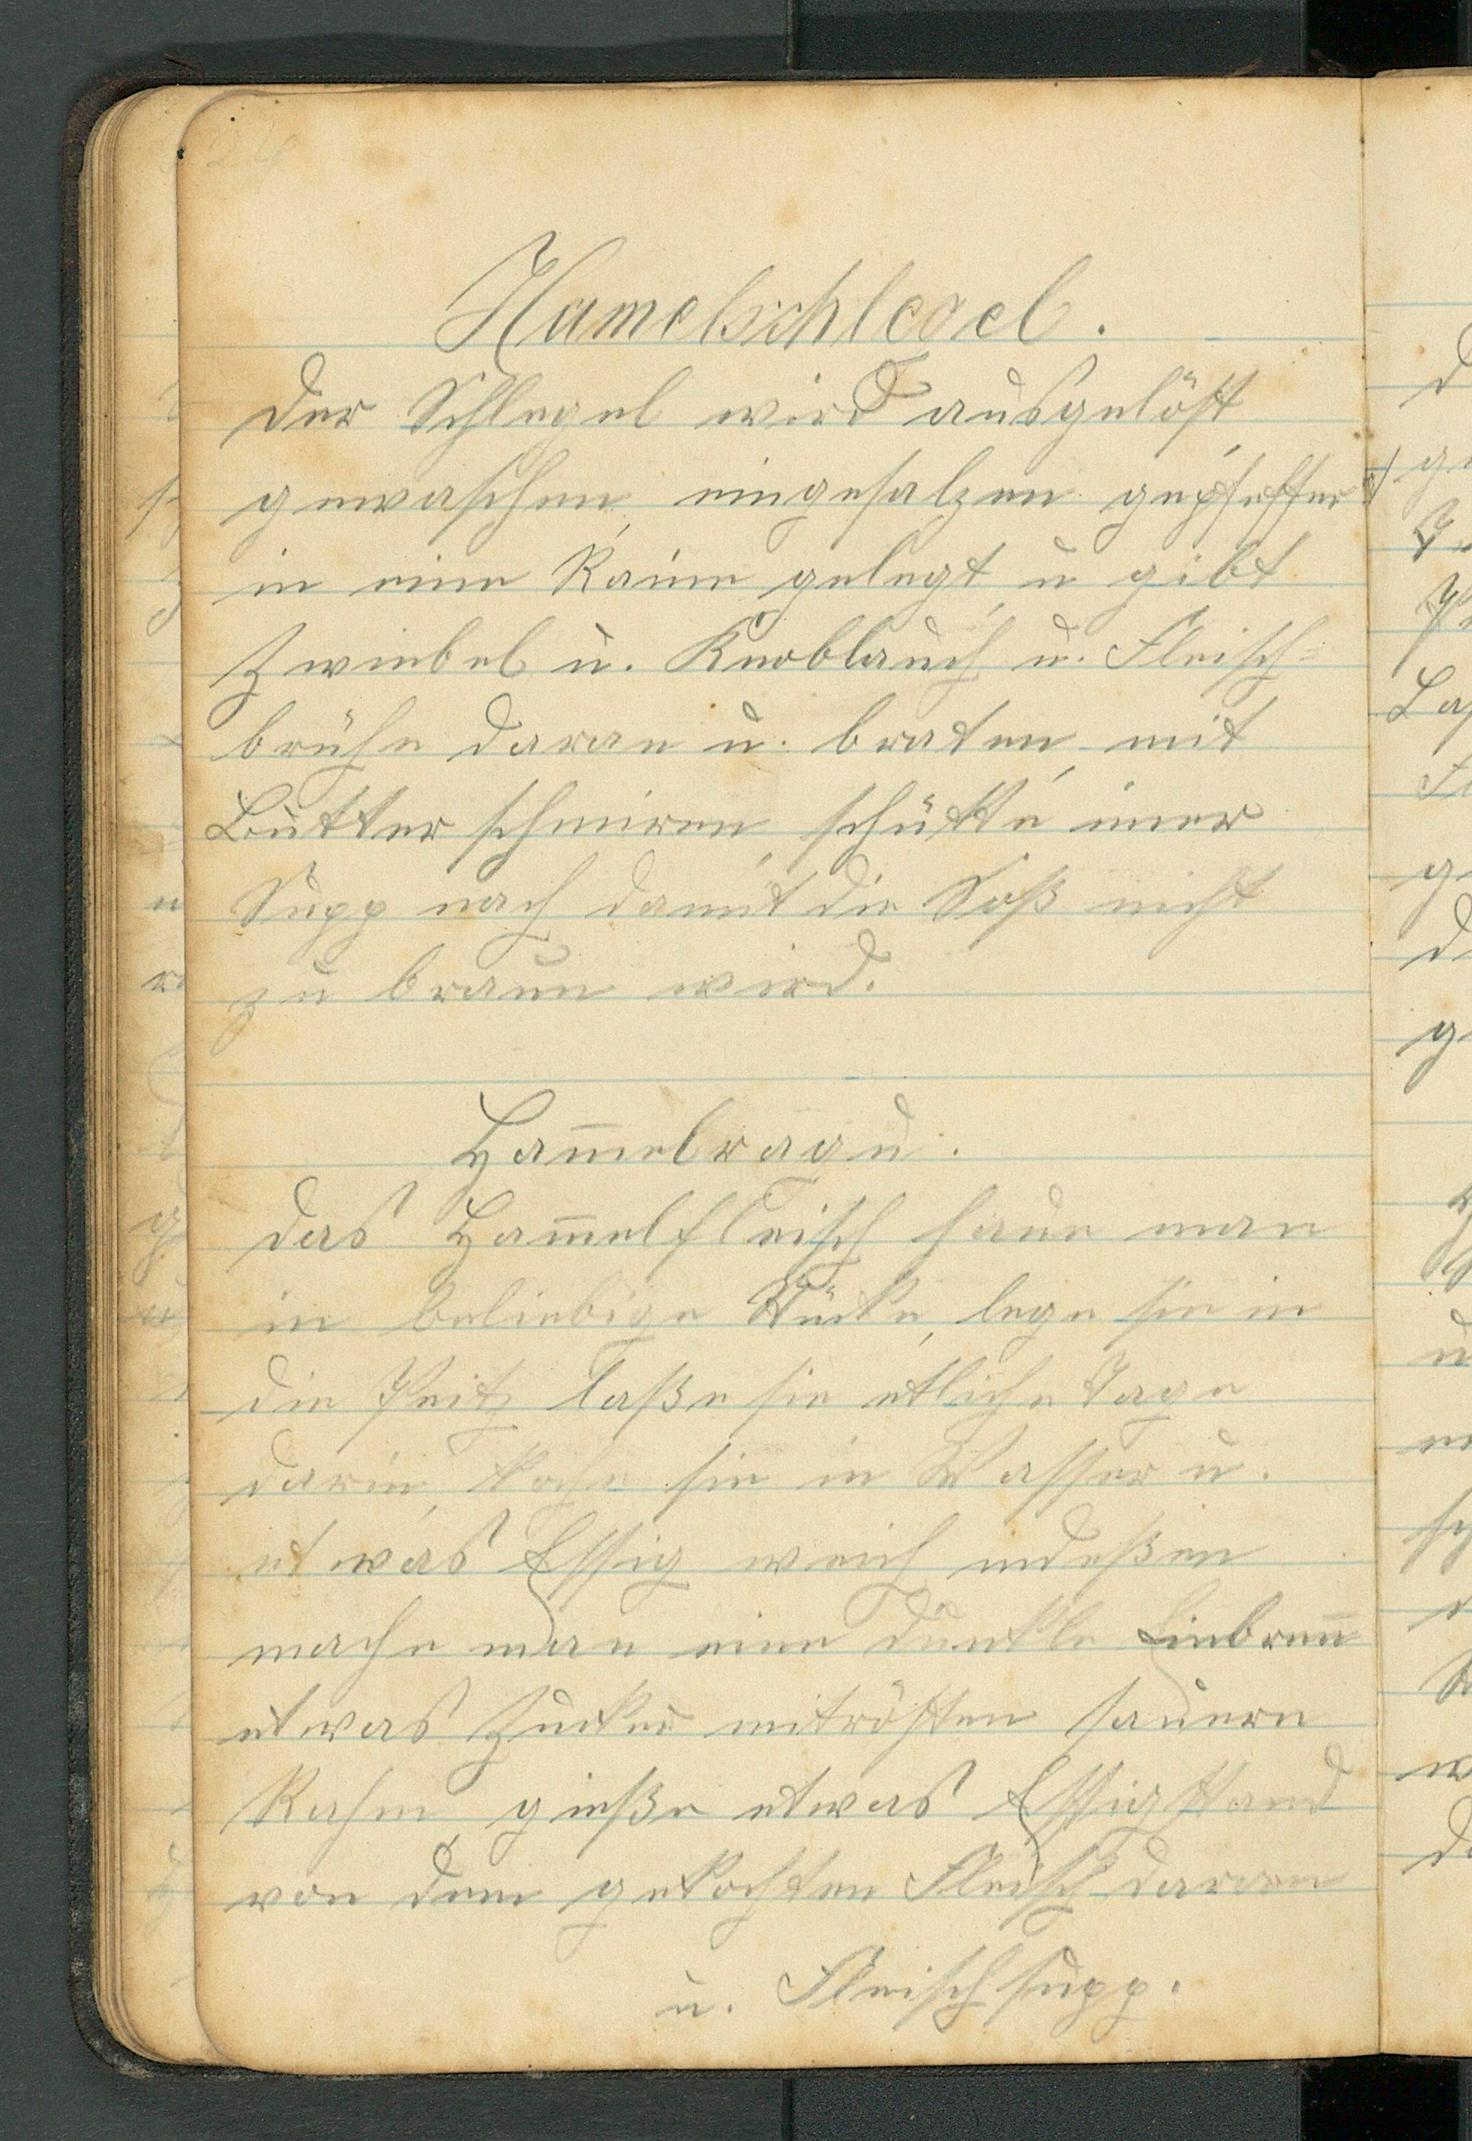 26
Hamelschlegel.
Der Schlegel wird ausgelöst,
gewaschen, eingesalzen gepfeffert
in eine Raine gelegt, u gibt
Zwiebel u. Knoblauch u. Fleisch=
brühe daran u. braten, mit
Butter schmiren, schütte imer
Supp nach damit die Soß nicht
zu braun wird.
Ham̅elragu.
Das Ham̅elfleisch haue man
in beliebige Stücke, lege sie in
die Peitz laße sie etliche Tage
darin, koche sie in Wasser u.
etwas Essig weich indeßen
mache man eine dunkle Einbren̅
etwas Zucker mitrösten sauern
Rahm gieße etwas Essigstand
von dem gekochten Fleisch daran
u. Fleischsupp.